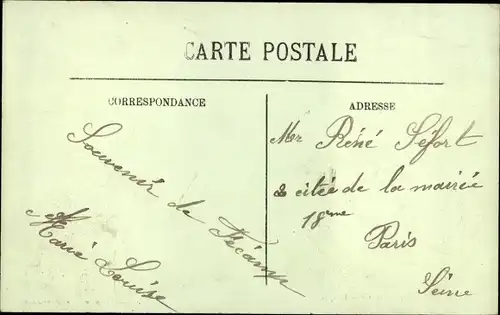 CARTE POSTALE
CORRESPONDANCE
Souvenir de Fécamp
Marie Louise
ADRESSE
Mer René Séfort
2 citée de la mairiée
18eme
Paris
Seine